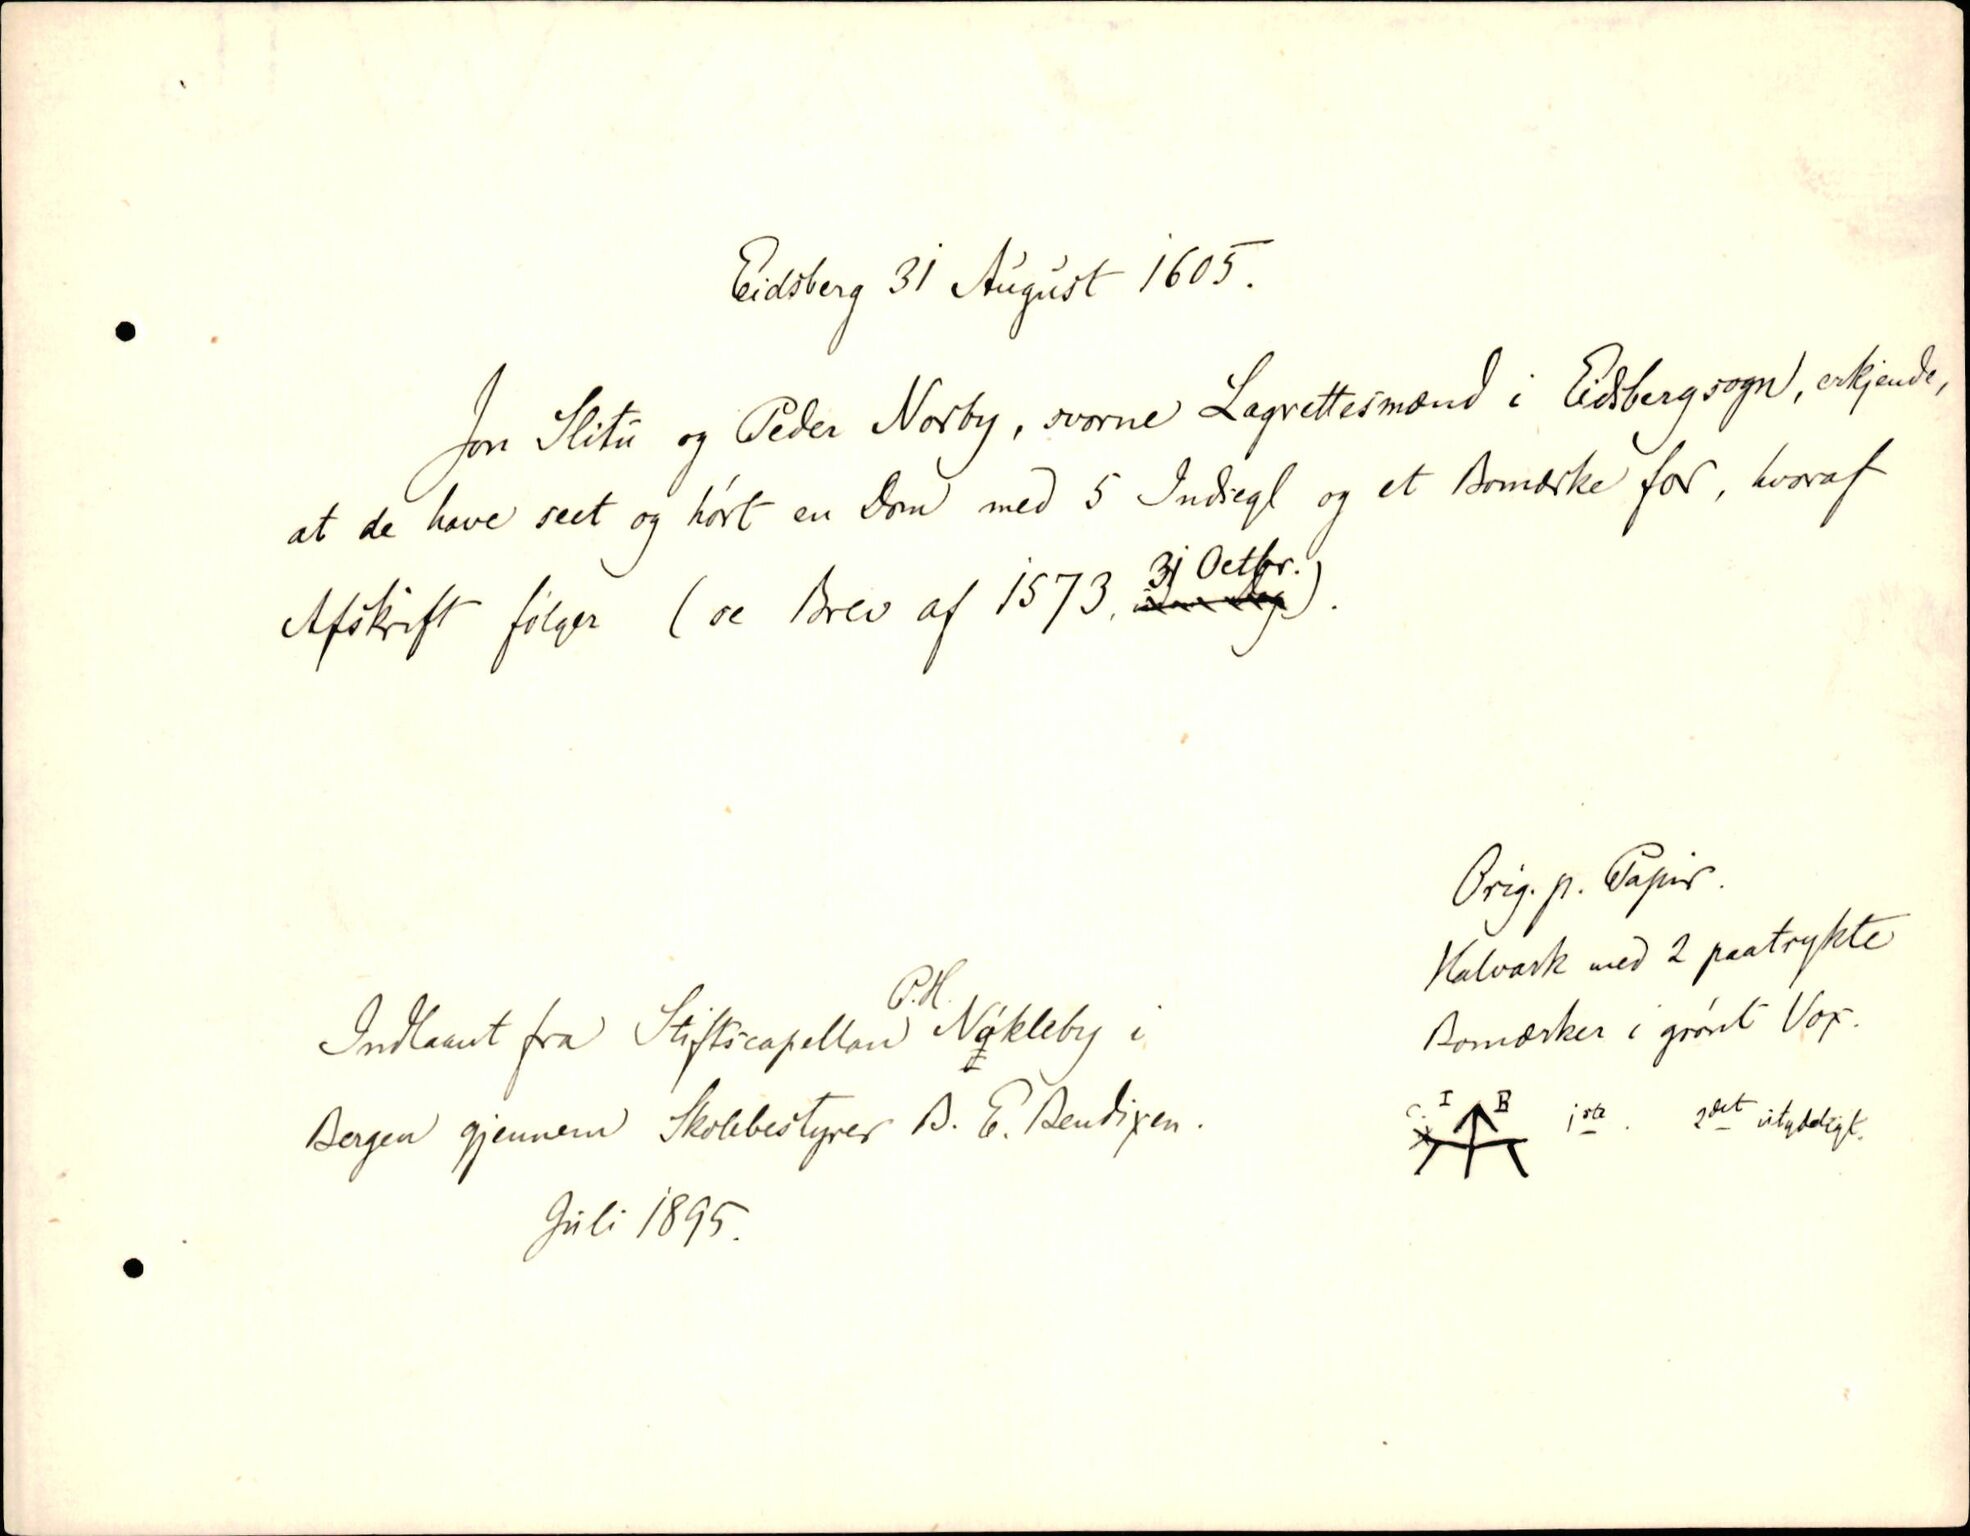 Eidsberg 31 August 1605.
Jon Slitu og Peder Norby, svorne Lagrettesmænd i Eidsbergsogn, erkjende,
at de have seet og hørt en Dom med 5 Indsegl og et Bomærke for, hvoraf
Afskrift følger (se Brev af 1573, 31 Octbr.).
Orig. p. Papir.
Halvark med 2 paatrykte
Bomærker i grønt Vox.
I B 1ste. 2det utydeligt.
Indlaant fra Stiftscapellan P.H. Nøkleby i
Bergen gjennem Skolebestyrer B. E. Bendixen.
Juli 1895.